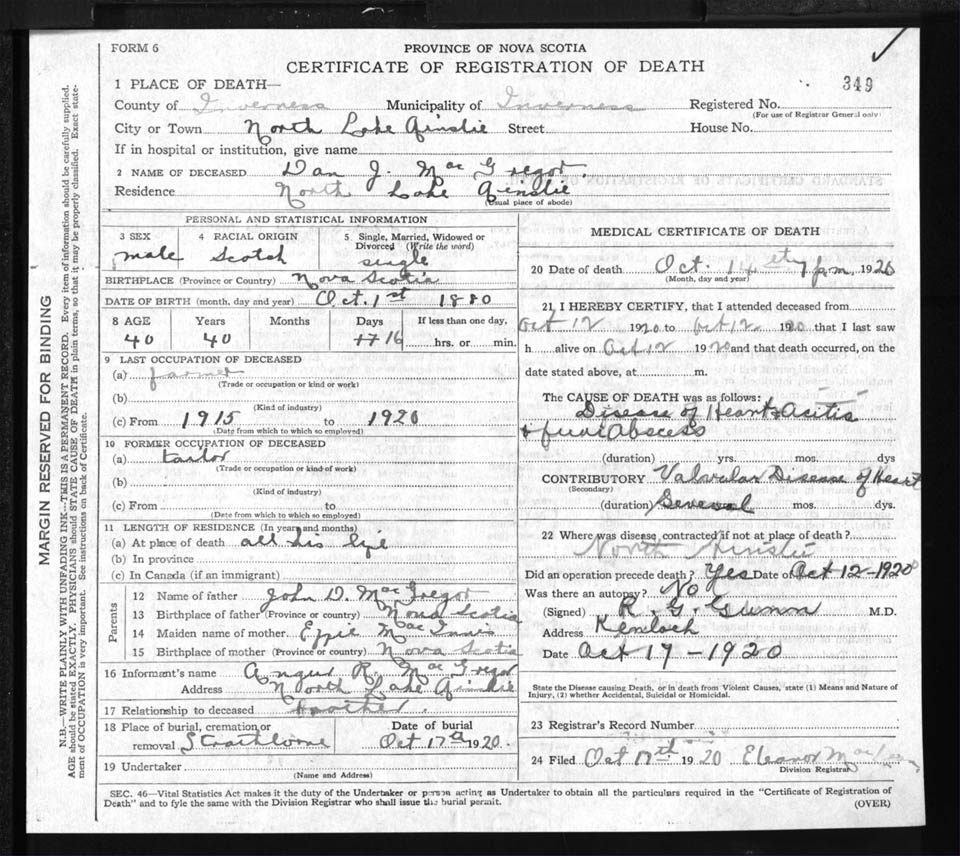 349
FORM 6
PROVINCE OF NOVA SCOTIA
CERTIFICATE OF REGISTRATION OF DEATH
1 PLACE OF DEATH—
County of Inverness Municipality of Inverness Registered No.
(For use of Registrar General only)
City or Town North Lake Ainslie Street House No.
If in hospital or institution, give name
2 NAME OF DECEASED Dan J. Mac Gregor
Residence North Lake Ainslie
(Usual place of abode)
MARGIN RESERVED FOR BINDING
N.B.—WRITE PLAINLY WITH UNFADING INK—THIS IS A PERMANENT RECORD. Every item of information should be carefully supplied.
AGE should be stated EXACTLY. PHYSICIANS should STATE CAUSE OF DEATH in plain terms, so that it may be properly classified. Exact state-
ment of OCCUPATION is very important. See instructions on back of Certificate.
PERSONAL AND STATISTICAL INFORMATION
3 SEX
male
4 RACIAL ORIGIN
Scotch
5 Single, Married, Widowed or
Divorced (Write the word)
single
BIRTHPLACE (Province or Country) Nova Scotia
DATE OF BIRTH (month, day and year) Oct. 1st 1880
8 AGE Years Months Days If less than one day,
40 40 16 hrs. or min.
9 LAST OCCUPATION OF DECEASED
(a) farmer
(Trade or occupation or kind or work)
(b)
(Kind of industry)
(c) From 1915 to 1920
(Date from which to which so employed)
10 FORMER OCCUPATION OF DECEASED
(a) tailor
(Trade or occupation or kind of work)
(b)
(Kind of industry)
(c) From to
(Date from which to which so employed)
11 LENGTH OF RESIDENCE (In years and months)
(a) At place of death all his life
(b) In province
(c) In Canada (if an immigrant)
Parents
12 Name of father John D. Mac Gregor
13 Birthplace of father (Province or country) Nova Scotia
14 Maiden name of mother Effie Mac Innis
15 Birthplace of mother (Province or country) Nova Scotia
16 Informant's name Angus R. Mac Gregor
Address North Lake Ainslie
17 Relationship to deceased brother
18 Place of burial, cremation or
removal Strathlorne
Date of burial
Oct 17th 1920.
19 Undertaker
(Name and Address)
MEDICAL CERTIFICATE OF DEATH
20 Date of death Oct. 14 7 pm 1920
(Month, day and year)
21 I HEREBY CERTIFY, that I attended deceased from
Oct 12 1920 to Oct 12 1920 that I last saw
h alive on Oct 12 1920 and that death occurred, on the
date stated above, at m.
The CAUSE OF DEATH was as follows:
Disease of Heart & Acitis
& Abscess
(duration) yrs. mos. dys
CONTRIBUTORY Valvular Disease of Heart
(Secondary)
(duration) Several mos. dys.
22 Where was disease contracted if not at place of death?
North Ainslie
Did an operation precede death? Yes Date of Oct 12-1920
Was there an autopsy? No
(Signed) R. G. Gunn M.D.
Address Kenloch
Date Oct 17-1920
State the Disease causing Death, or in death from Violent Causes, state (1) Means and Nature of
Injury, (2) whether Accidental, Suicidal or Homicidal.
23 Registrar's Record Number
24 Filed Oct 17th 1920 Eleanor
Division Registrar
SEC. 46—Vital Statistics Act makes it the duty of the Undertaker or person acting as Undertaker to obtain all the particulars required in the "Certificate of Registration of
Death" and to fyle the same with the Division Registrar who shall issue the burial permit.
(OVER)